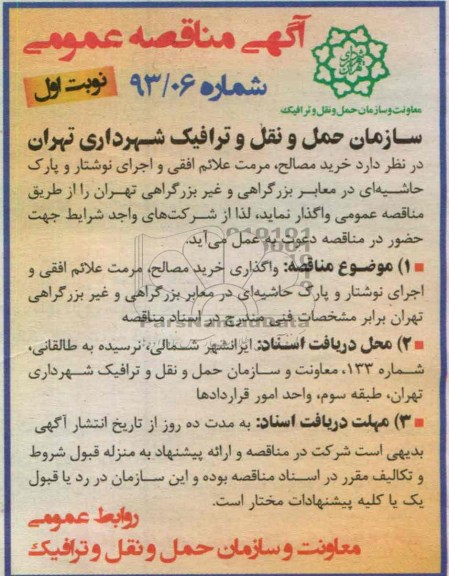 آگهی مناقصه عمومی
شماره ۹۳/۰۶
نوبت اول
معاونت و سازمان حمل و نقل و ترافیک
سازمان حمل و نقل و ترافیک شهرداری تهران
در نظر دارد خرید مصالح، مرمت علائم افقی و اجرای نوشتار و پارک
حاشیه‌ای در معابر بزرگراهی و غیر بزرگراهی تهران را از طریق
مناقصه عمومی واگذار نماید، لذا از شرکت‌های واجد شرایط جهت
حضور در مناقصه دعوت به عمل می‌آید.
۱) موضوع مناقصه: واگذاری خرید مصالح، مرمت علائم افقی و
اجرای نوشتار و پارک حاشیه‌ای در معابر بزرگراهی و غیر بزرگراهی
تهران برابر مشخصات فنی مندرج در اسناد مناقصه
ParsNamadData
۲) محل دریافت اسناد: ایرانشهر شمالی، نرسیده به طالقانی،
شماره ۱۳۳، معاونت و سازمان حمل و نقل و ترافیک شهرداری
تهران، طبقه سوم، واحد امور قراردادها
۳) مهلت دریافت اسناد: به مدت ده روز از تاریخ انتشار آگهی
بدیهی است شرکت در مناقصه و ارائه پیشنهاد به منزله قبول شروط
و تکالیف مقرر در اسناد مناقصه بوده و این سازمان در رد یا قبول
یک یا کلیه پیشنهادات مختار است.
روابط عمومی
معاونت و سازمان حمل و نقل و ترافیک